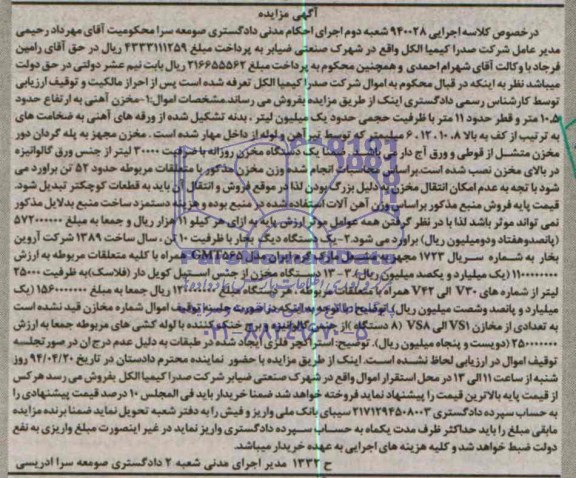 آگهی مزایده
درخصوص کلاسه اجرایی ۹۴۰۰۲۸ شعبه دوم اجرای احکام مدنی دادگستری صومعه سرا محکومیت آقای مهرداد رحیمی
مدیر عامل شرکت صدرا کیمیا الکل واقع در شهرک صنعتی ضیابر به پرداخت مبلغ ۴۳۳۳۱۱۱۲۵۹ ریال در حق آقای رامین
فرجاد با وکالت آقای شهرام احمدی و همچنین محکوم به پرداخت مبلغ ۲۱۶۶۵۵۵۶۲ ریال بابت نیم عشر دولتی در حق دولت
میباشد نظر به اینکه در قبال محکوم به اموال شرکت صدرا کیمیا الکل تعرفه شده است پس از احراز مالکیت و توقیف ارزیابی
توسط کارشناس رسمی دادگستری اینک از طریق مزایده بفروش می رساند.مشخصات اموال:۱-مخزن آهنی به ارتفاع حدود
۱۰.۵ متر و قطر حدود ۱۱ متر با ظرفیت حجمی حدود یک میلیون لیتر ، بدنه تشکیل شده از ورقه های آهنی به ضخامت های
به ترتیب از کف به بالا ۸، ۱۰، ۱۲، ۶ میلیمتر که توسط تیرآهن و لوله از داخل مهار شده است . مخزن مجهز به پله گردان دور
مخزن متشکل از قوطی و ورق آج دار می باشد. ضمنا یک دستگاه مخزن روزانه با ظرفیت ۳۰۰۰۰ لیتر از جنس ورق گالوانیزه
در بالای مخزن نصب شده است.براساس محاسبات انجام شده وزن مخزن مذکور با متعلقات مربوطه حدود ۵۲ تن برآورد می
شود با تجه به عدم امکان انتقال مخزن به دلیل بزرگ بودن لذا در موقع فروش و انتقال آن باید به قطعات کوچکتر تبدیل شود.
قیمت پایه فروش منبع مذکور براساس وزن آهن آلات استفاده شده در منبع بوده و هزینه دستمزد ساخت منبع بدلایل مذکور
نمی تواند موثر باشد لذا با در نظر گرفتن همه عوامل موثر ارزش پایه به ازای هر کیلو ۱۱ هزار ریال و جمعا به مبلغ ۵۷۲۰۰۰۰۰۰
(پانصدوهفتاد ودومیلیون ریال) برآورد می شود.۲-یک دستگاه دیگ بخار با ظرفیت ۱۰ تن ، سال ساخت ۱۳۸۹ شرکت آروین
بخار به شماره سریال ۱۷۲۳ مجهز به مشعل گازی مارک گرم ایران مدل GMT۵۶۵ همراه با کلیه متعلقات مربوطه به ارزش
۱۱۰۰۰۰۰۰۰۰ (یک میلیارد و یکصد میلیون ریال).۳-۱۳ دستگاه مخزن از جنس استیل کویل دار (فلاسک)به ظرفیت ۲۵۰۰۰
لیتر از شماره های V۳۰ الی V۴۲ همراه با متعلقات مربوطه ، هر دستگاه مبلغ ۱۲۰۰۰۰۰۰۰ ریال جمعا به مبلغ ۱۵۶۰۰۰۰۰۰۰ (یک
میلیارد و پانصد وشصت میلیون ریال). توضیح:با توجه به اینکه در صورت جلسه توقیف اموال شماره مخازن قید نشده است
به تعدادی از مخازن VS۱ الی VS۸ (۸ دستگاه) از جنس گالوانیزه و برج خنک کننده با لوله کشی های مربوطه جمعا به ارزش
۲۵۰۰۰۰۰۰۰ (دویست و پنجاه میلیون ریال). توضیح: استراکچر فلزی ایجاد شده در طبقات به دلیل عدم درج ان در صورتجلسه
توقیف اموال در ارزیابی لحاظ نشده است. اینک از طریق مزایده با حضور نماینده محترم دادستان در تاریخ ۹۴/۰۴/۲۰ روز
شنبه از ساعت ۱۱ الی ۱۳ در محل استقرار اموال واقع در شهرک صنعتی ضیابر شرکت صدرا کیمیا الکل بفروش می رسد هر کس
از قیمت پایه بالاترین قیمت را پیشنهاد نماید فروخته خواهد شد ضمنا خریدار باید فی المجلس ۱۰ درصد قیمت پیشنهادی را
به حساب سپرده دادگستری ۲۱۷۱۲۹۴۵۰۸۰۰۳ سیبای بانک ملی واریز و فیش را به دفتر شعبه تحویل نماید ضمنا برنده مزایده
مابقی مبلغ را باید حداکثر ظرف مدت یکماه به حساب سپرده دادگستری واریز نماید در غیر اینصورت مبلغ واریزی به نفع
دولت ضبط خواهد شد و کلیه هزینه های اجرایی به عهده خریدار میباشد.
ح ۱۳۳۲ مدیر اجرای مدنی شعبه ۲ دادگستری صومعه سرا ادریسی